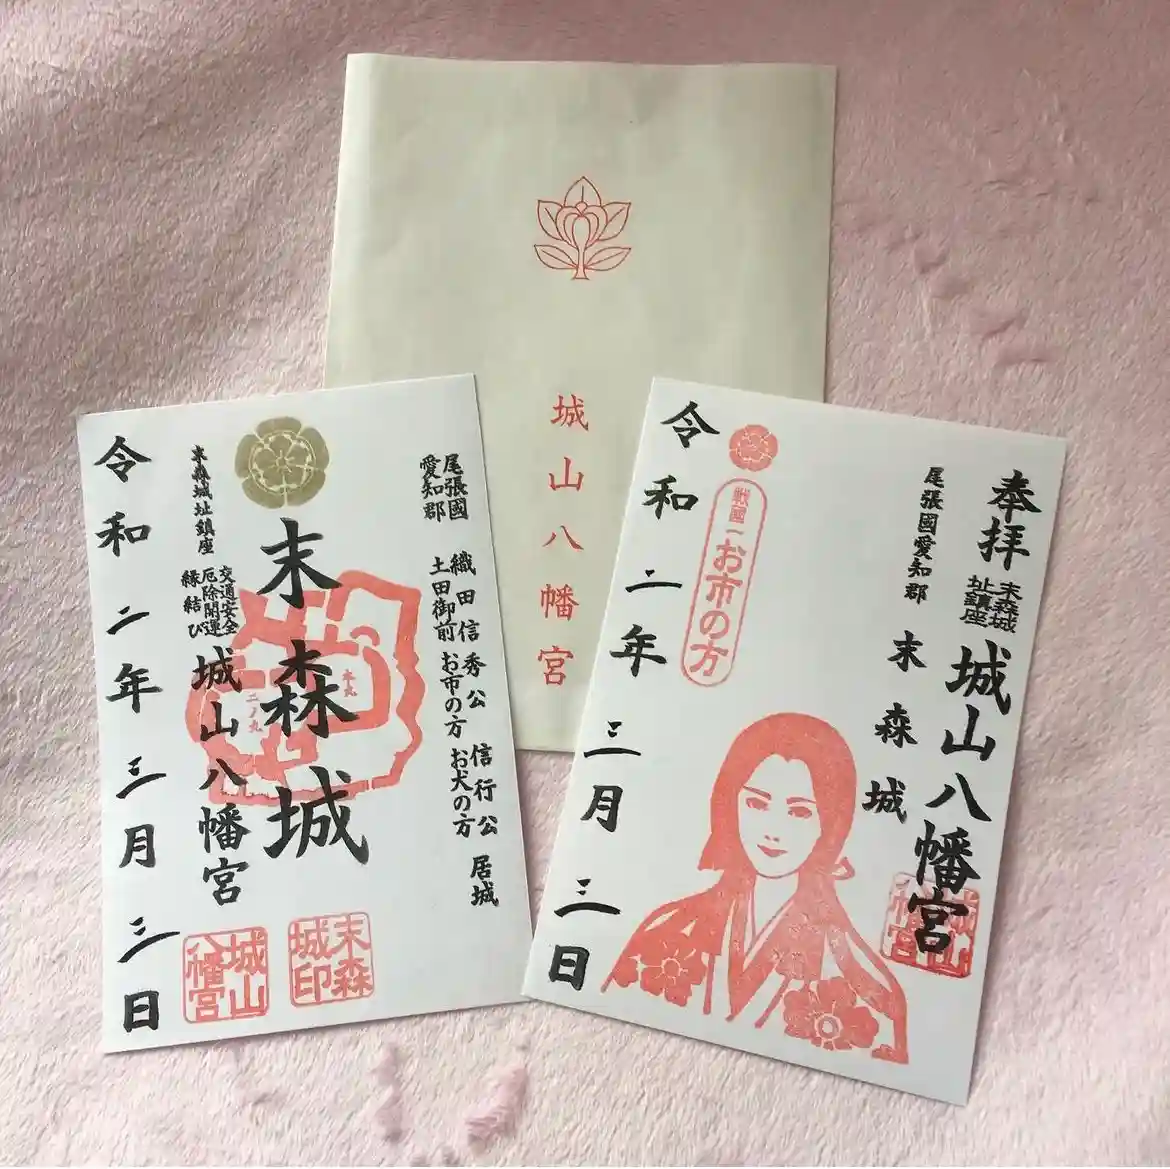 城山八幡宮
尾張國
愛知郡
織田信秀公 信行公 居城
土田御前 お市の方 お犬の方
末森城
本丸
二ノ丸
末森城址鎮座
交通安全
厄除開運
縁結び
城山八幡宮
令和二年三月三日
末森城印
城山八幡宮
奉拝
末森城
址鎮座
城山八幡宮
尾張國愛知郡
末森城
戦國一
お市の方
令和二年三月三日
城山八幡宮